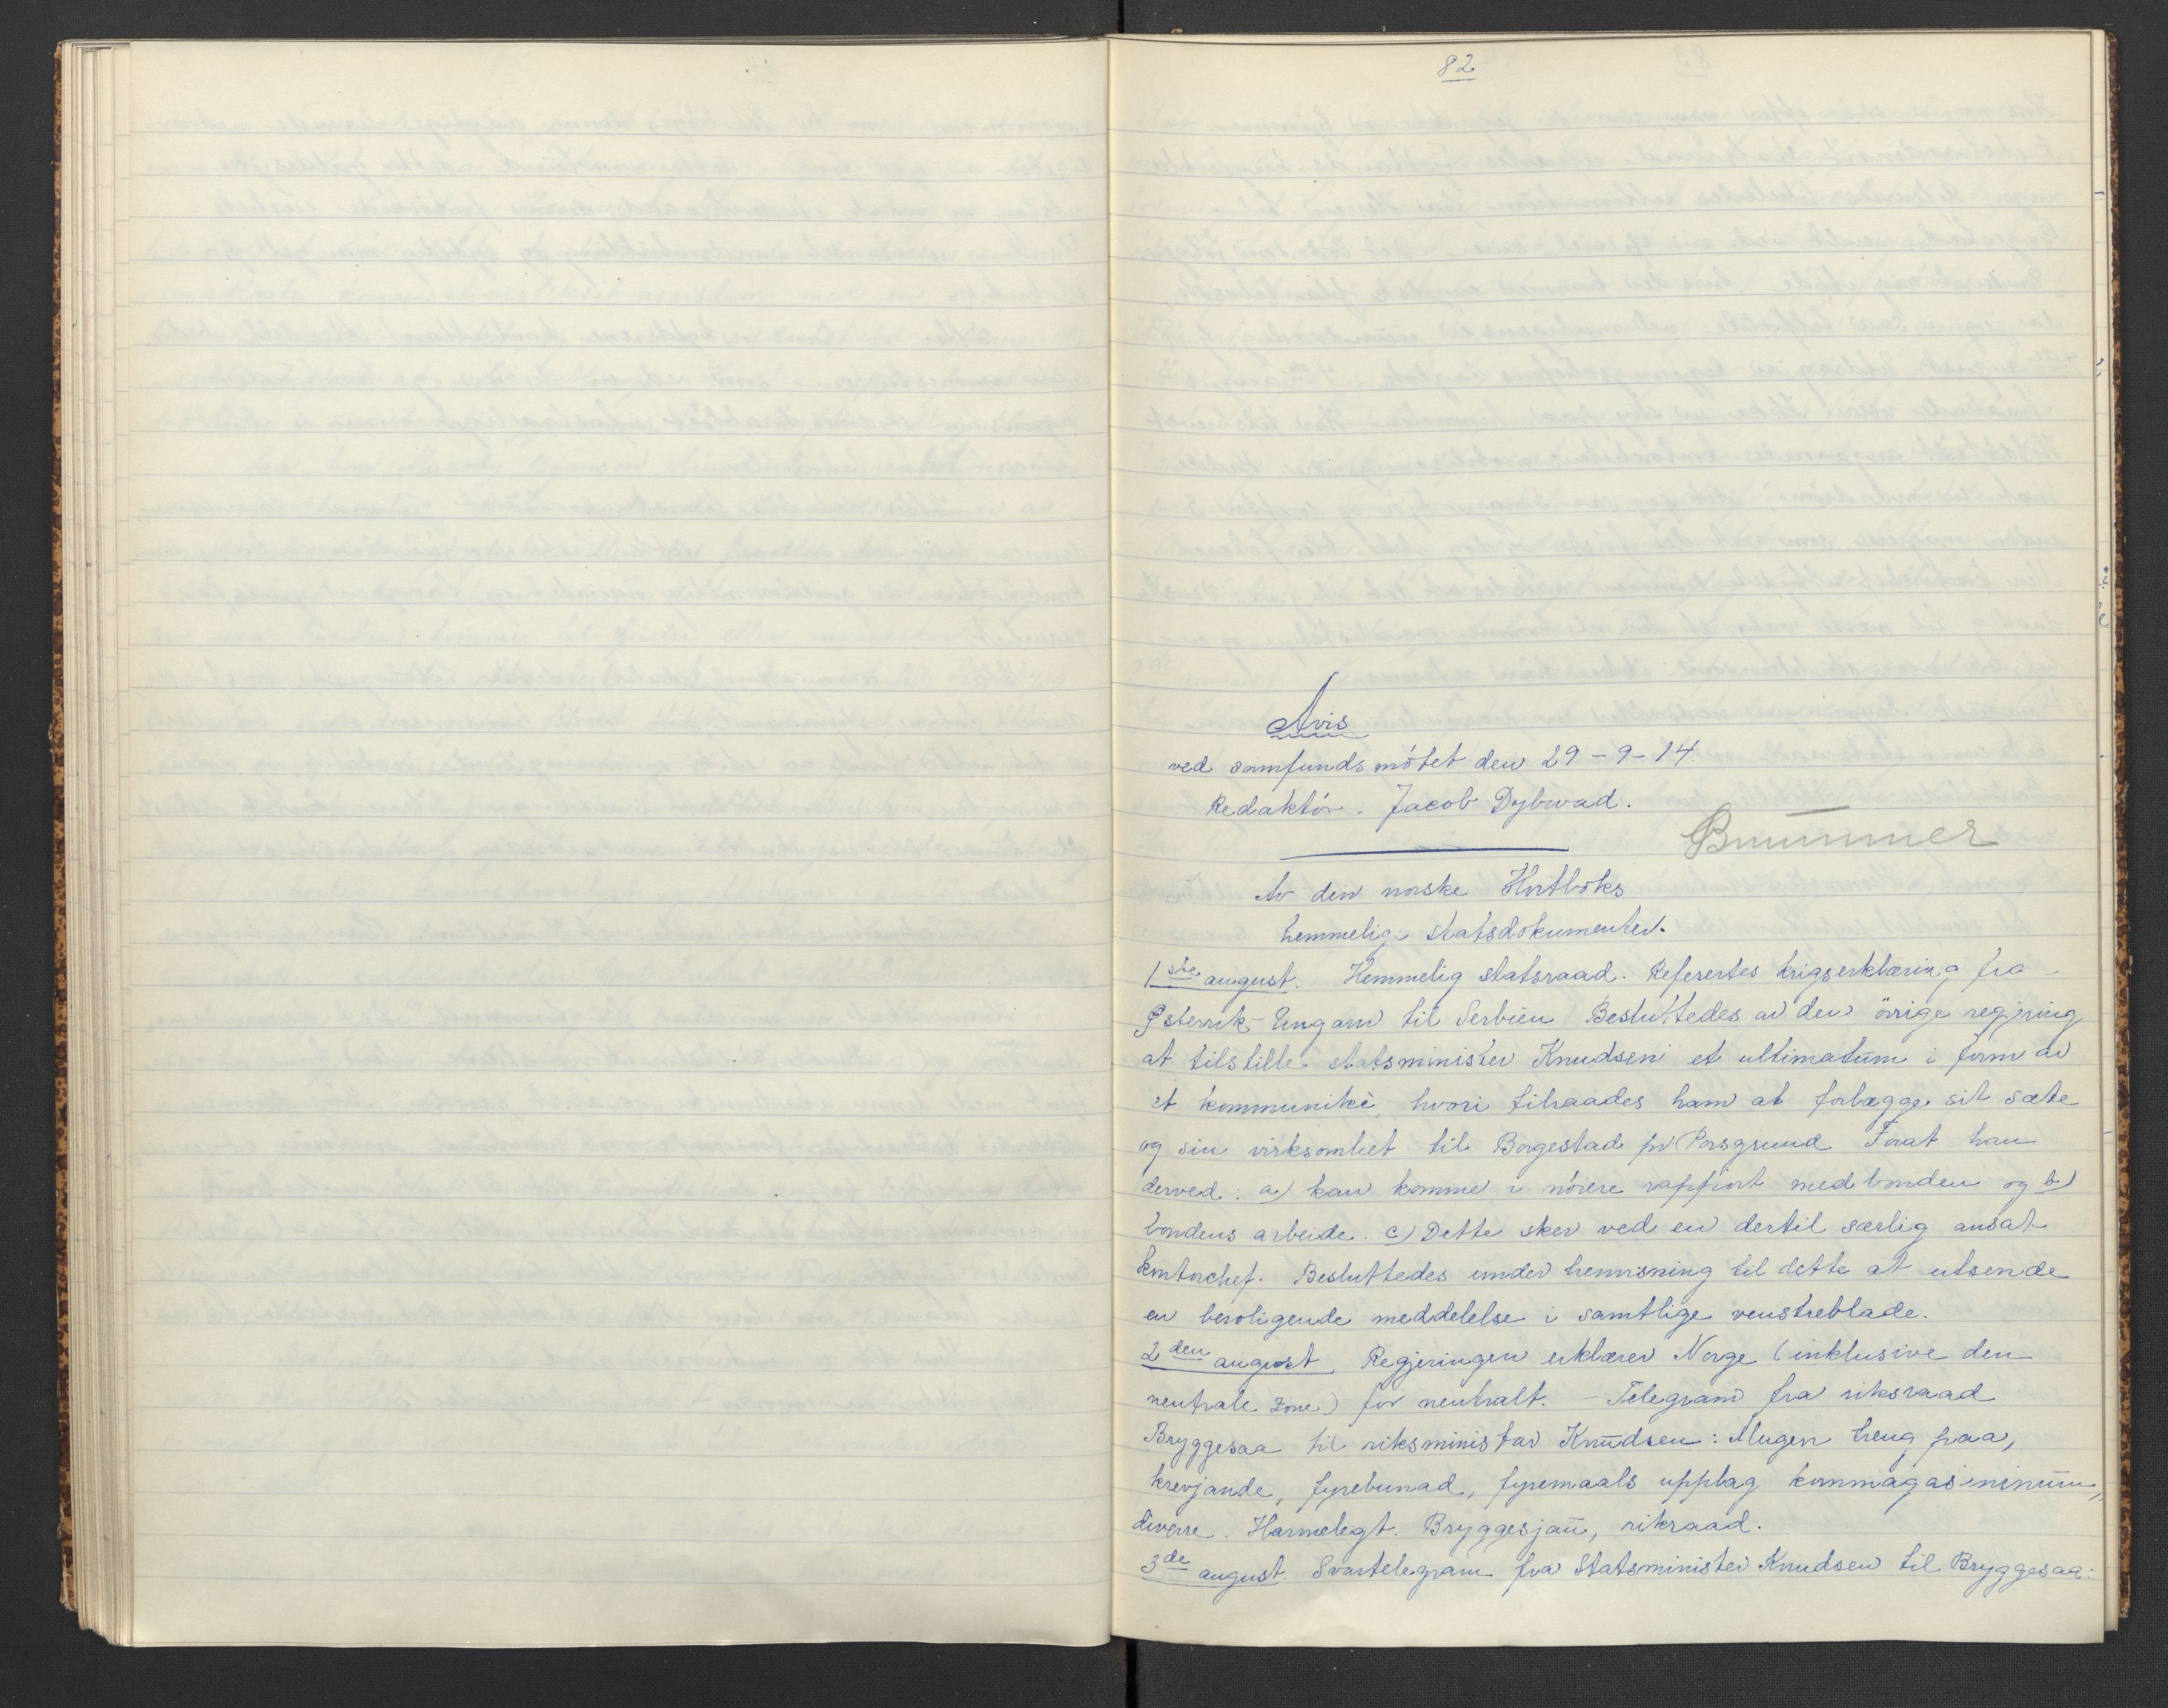 82
Avis
ved samfundsmötet den 29-9-14.
Redaktör: Jacob Dybwad.
Brummer
Av den norske Hvitboks
hemmelige statsdokumenter.
1ste august. Hemmelig statsraad. Referertes krigserklæring fra
Österrik-Ungarn til Serbien Besluttedes av den övrige regjering
at tilstille statsminister Knudsen et ultimatum i form av
et kommuniké, hvori tilraades ham at forlægge sit sæte
og sin virksomhet til Borgestad pr. Porsgrund Forat han
derved: a) kan komme i nöiere rapport med bonden og b)
bondens arbeide. c) Dette sker ved en dertil særlig ansat
kontorchef. Besluttedes under henvisning til dette at utsende
en beroligende meddelelse i samtlige venstreblade.
2den august Regjeringen erklærer Norge (inklusive den
neutrale zone) for neutralt. - Telegram fra riksraad
Bryggesaa til riksministar Knudsen: Mugen treng paa,
krevjande, fyrebunad, fyremaals upplag kornmagasininum,
diverse. Harmelegt. Bryggesjau, rikraad.
3de august. Svartelegram fra Statsminister Knudsen til Bryggesaa: